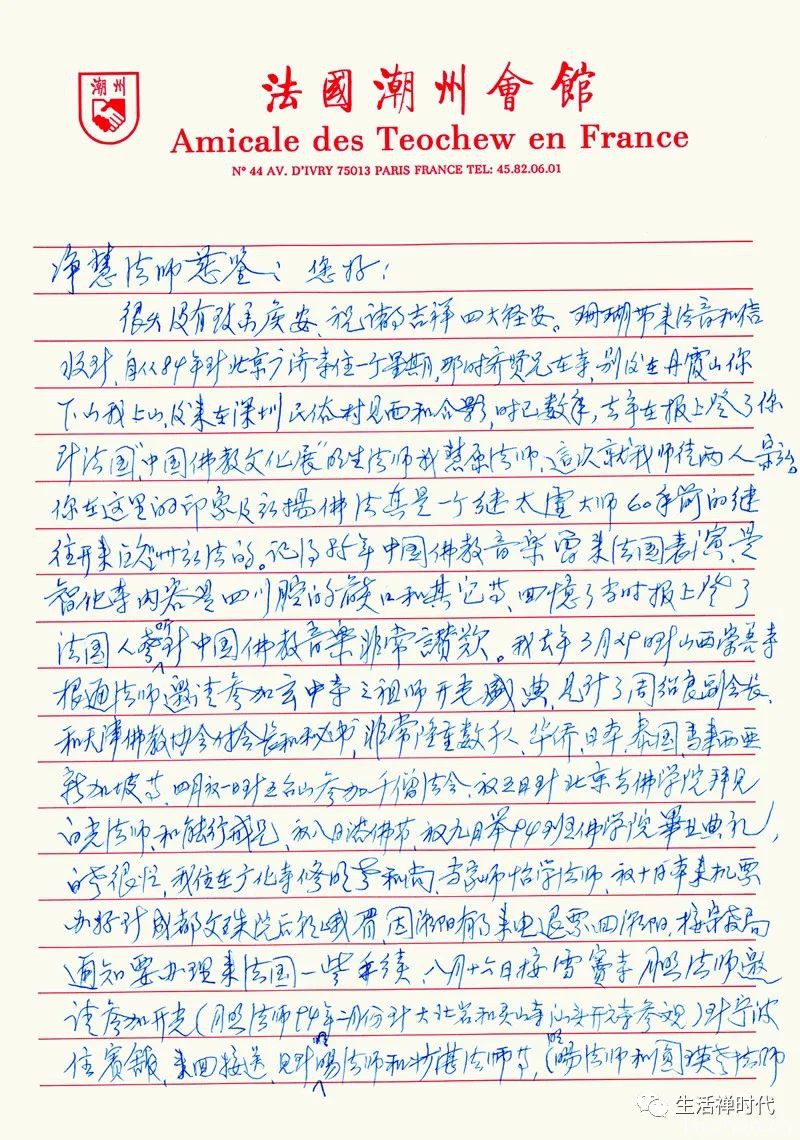 潮州
法國潮州會館
Amicale des Teochew en France
Nº 44 AV. D'IVRY 75013 PARIS FRANCE TEL: 45.82.06.01
净慧法师慈鉴：您好！
很久没有致函候安、祝诸事吉祥四大轻安。珊瑚带来法音和信
收到，自从84年到北京广济寺住一个星期，那时齐贤兄在寺，别后在丹霞山你
下山我上山，后来在深圳民俗村见面和合影，时已数年，去年在报上登了你
到法国"中国佛教文化展"的生法师我慧原法师，這次就我师徒两人
你在这里的印象及弘揚佛法真是一个继太虚大师60年前的继
往开来区欧洲弘法的。记得 年中国佛教音樂團来法国表演，是
智化寺内容是四川腔的 口和其它等，回憶了当时报上登了
法国人 听到中国佛教音樂非常讃歎。我去年3月29日到山西崇善寺
根通法师邀请参加玄中寺三祖师开光盛典，见到了周绍良副会长，
和天津佛教协会付会长和秘书，非常隆重数千人，华侨，日本，泰国，馬来西亚
新加坡等，四月初一日到五台山参加千僧法会，初五日到北京去佛学院拜见
白光法师，和能行戒兄，初八日浴佛节，初九日举94班佛学院畢业典礼，
的 很忙，我住在广化寺修明老和尚，当家师怡学法师，初十日本来机票
办好到成都文珠院后往峨眉，因 阳有事来电退票回 阳，接宗教局
通知要办理来法国一些手续，八月十六日接雪窦寺月照法师邀
请参加开光（月照法师94年二月份到大北岩和灵山寺汕头开元寺参观）到宁波
住賓舘，来回接送，见到明暘法师和妙湛法师等，（明暘法师和圓瑛老法师
生活禅时代